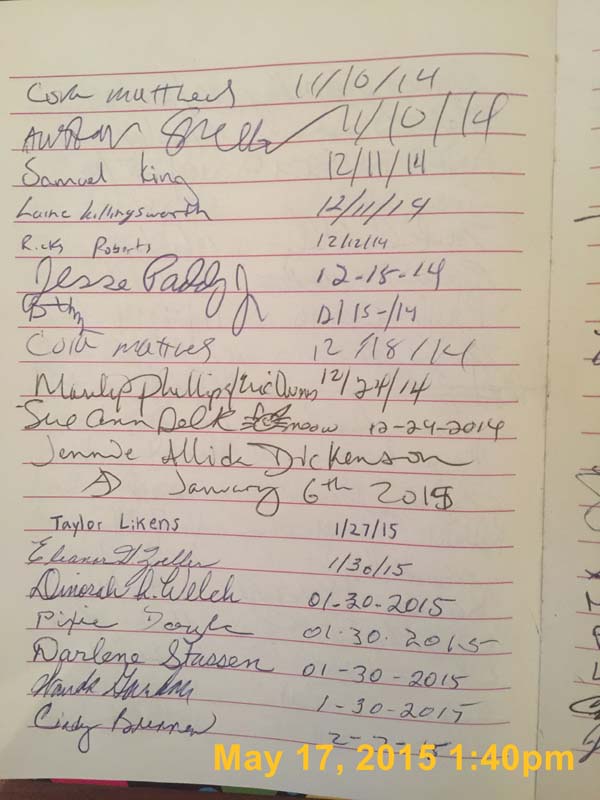 Cora Matthews 11/10/14
11/10/14
Samuel King 12/11/14
Laine Killingsworth 12/11/14
Ricky Roberts 12/12/14
Jesse Paddy Jr 12-15-14
12/15-/14
Cora 12/18/14
Phillips/Eric 12/24/14
Sue Ann Delk 12-24-2014
Jennie Allida Dickenson
January 6th 2015
Taylor Likens 1/27/15
Eleanor 1/30/15
Dinorah L. Welch 01-30-2015
Pixie Doyle 01.30.2015
Darlene Stassen 01-30-2015
1-30-2015
Cindy Brennan 2-2-15
May 17, 2015 1:40pm